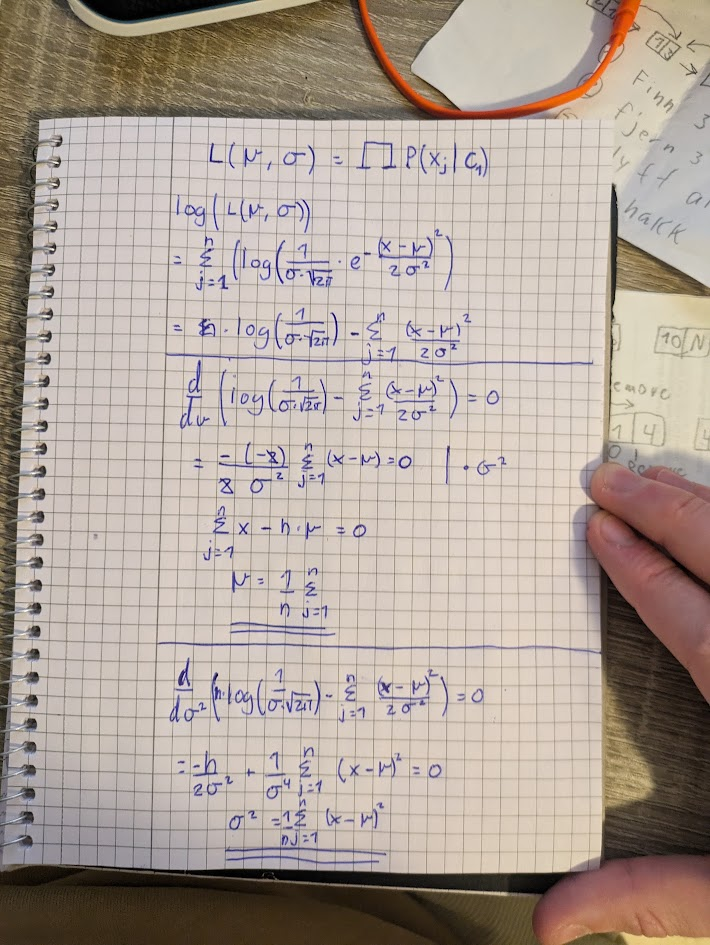 L(μ, σ) = ∏ P(x_j | C_1)
log(L(μ, σ))
= Σ_{j=1}^{n} (log(1/(σ·√2π) · e^{-(x-μ)²/2σ²})
= n · log(1/(σ·√2π)) - Σ_{j=1}^{n} (x-μ)²/2σ²
d/dμ (log(1/(σ·√2π)) - Σ_{j=1}^{n} (x-μ)²/2σ²) = 0
= -(-2)/(2 σ²) Σ_{j=1}^{n} (x-μ) = 0 | · σ²
Σ_{j=1}^{n} x - n·μ = 0
μ = 1/n Σ_{j=1}^{n}
d/dσ² (n·log(1/(σ·√2π)) - Σ_{j=1}^{n} (x-μ)²/2σ²) = 0
= -n/2σ² + 1/σ⁴ Σ_{j=1}^{n} (x-μ)² = 0
σ² = 1/n Σ_{j=1}^{n} (x-μ)²
1 3
Finn 3
fjern 3
hakk
10 N
1 4